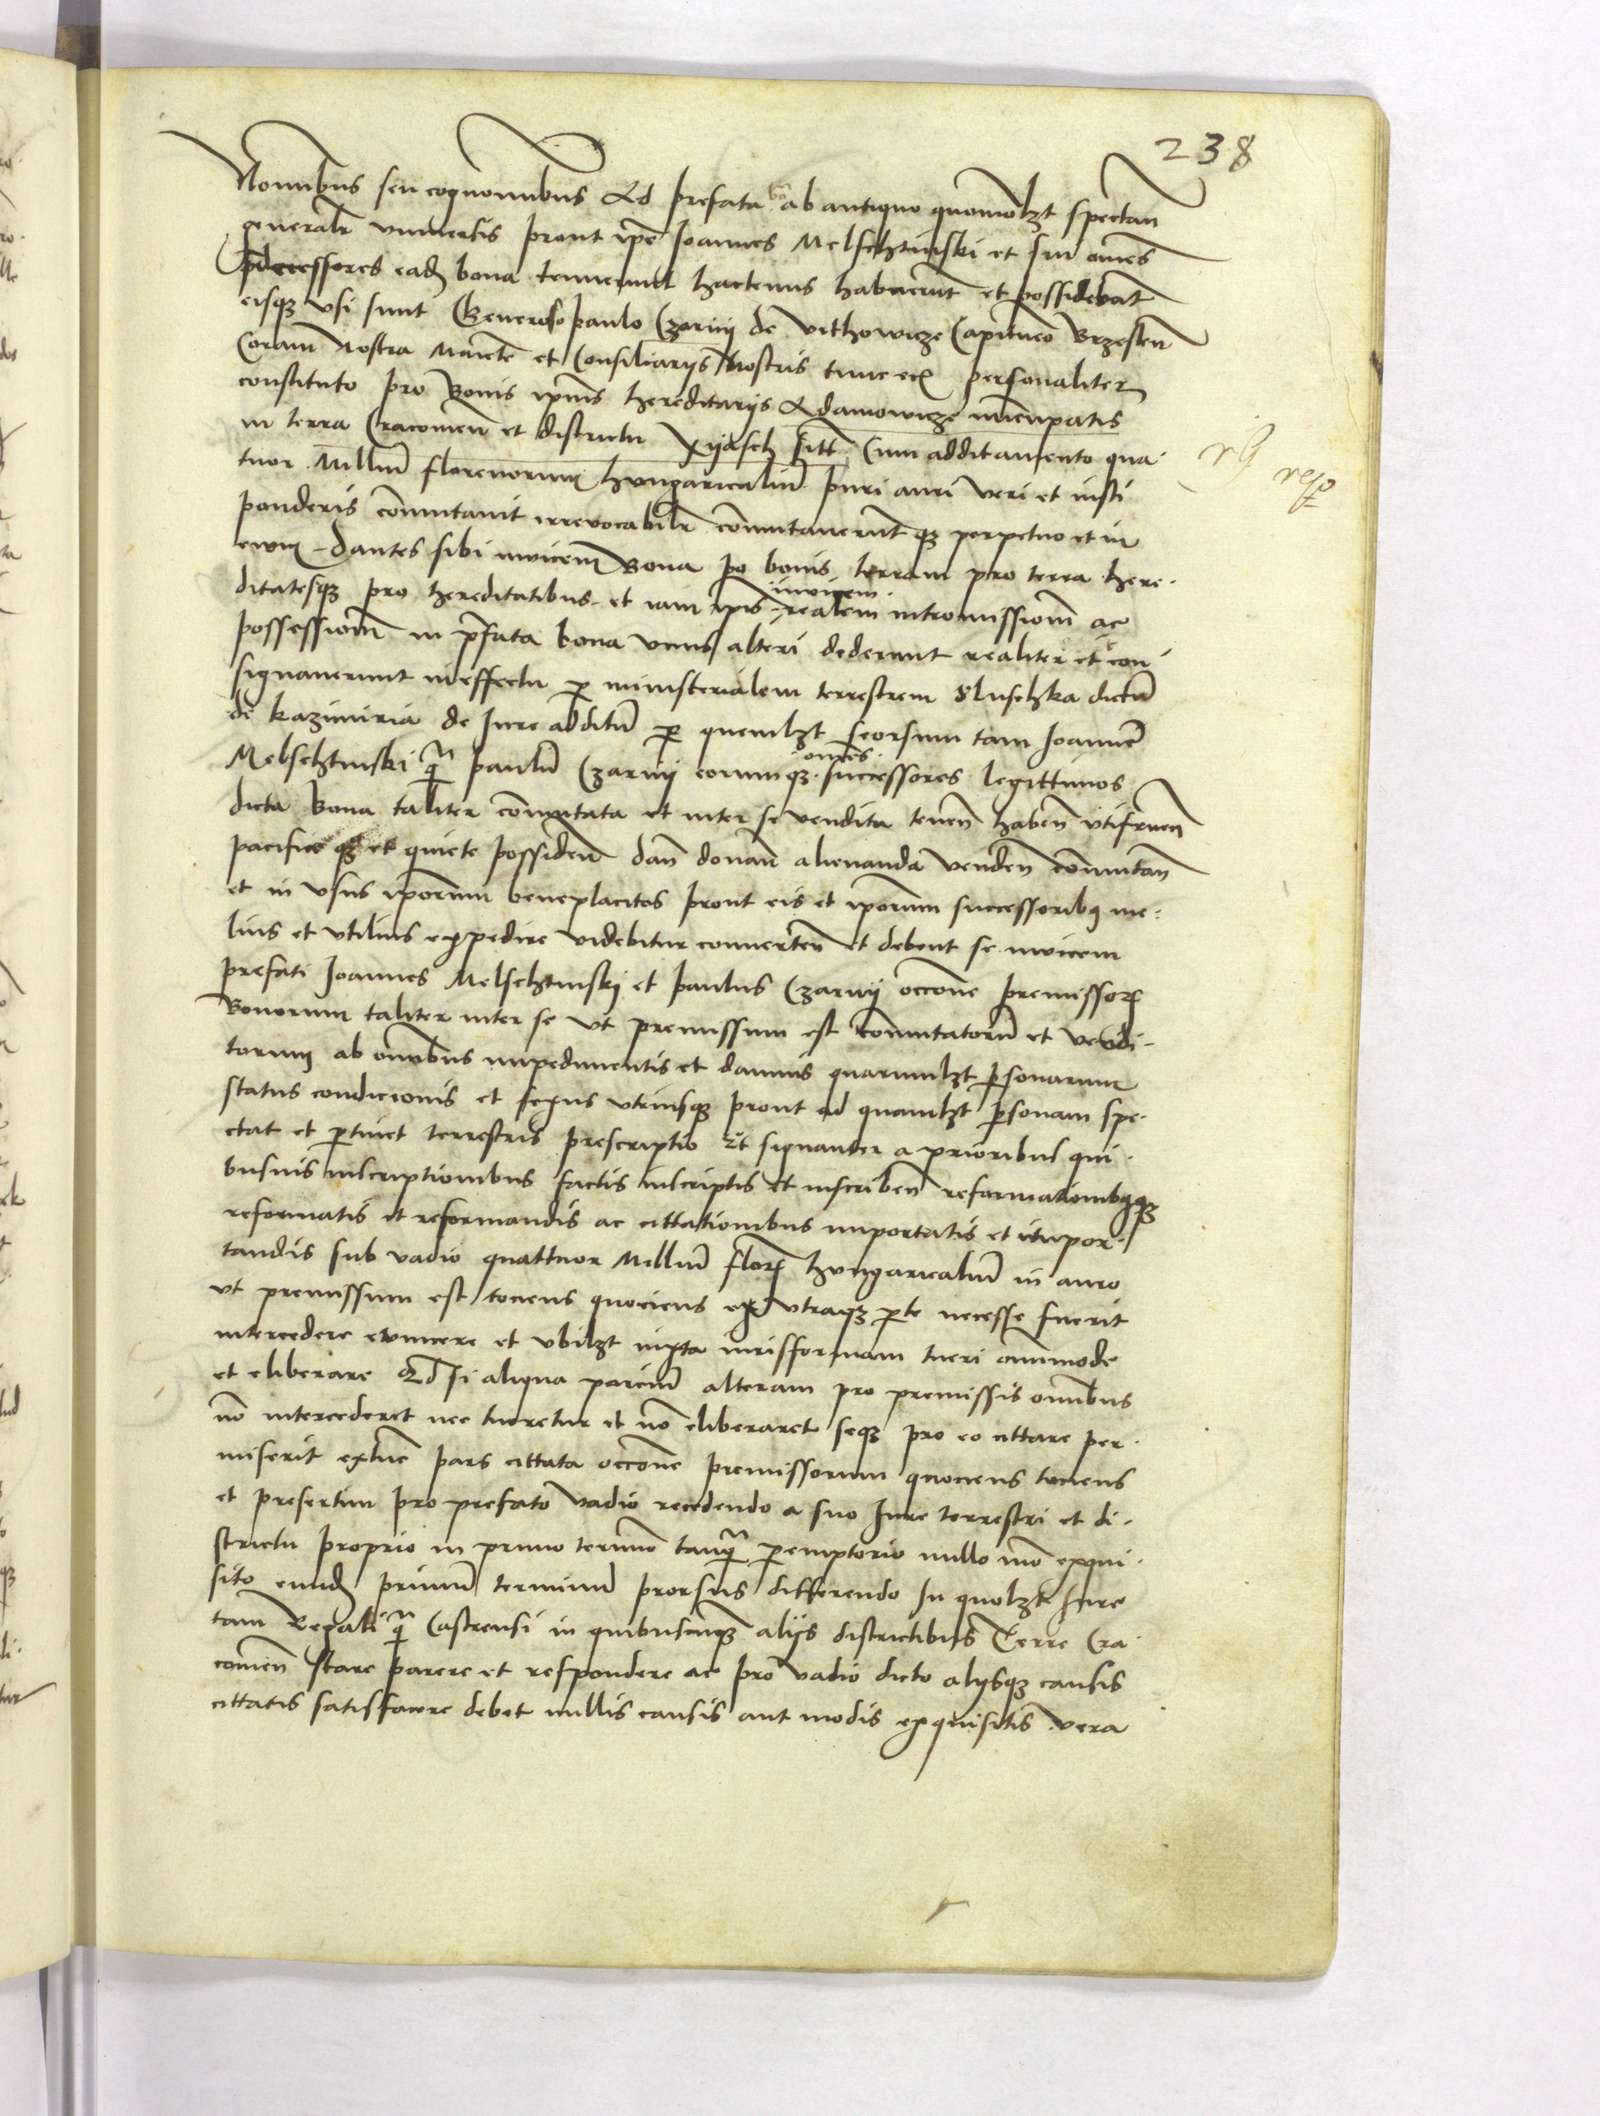 238
Nominibus seu cognominibus Ad prefata bo͞a ab antiquo quomolʒt spectan̄
generalr̄ vniuersis prout ip̄e Joannes Melschtinski et sui om̄es
p̄decessores eadꝫ bona tenuerunt hactenus habuerunt et possidebāt
eisqꝫ vsi sunt Generoso paulo Czarnij de vithowicze Capitaneo Brzesten̄
Coram Nostra Maiēte et Consiliarijs Nostris tunc eciā personaliter
constituto pro Bonis ip̄ius hereditarijs Adamowicze nūcupatis
in terra Cracouien̄ et districtu Xijasch sitt̄ Cum additamento qua
tuor Milliū florenorum hungaricaliū puri auri veri et iusti
ponderis com̄utauit irreuocabilr̄ com̄utauerūt qꝫ perpetuo et in
ewm Dantes sibi inuicem Bona pro bonis terram pro terra here
ditatesqꝫ pro hereditatibus et iam ip̄is inuicem realem intromissionē ac
possessionē in p̄fata bona vnus alteri dederunt realiter et con
signauerunt in effectu ꝑ ministerialem terrestrem Sluschka dictū
de kazimiria de Jure additū ꝑ quemlʒt seorsum tam Joannē
Melschtinski q̄ paulū Czarnij eorumqꝫ om̄es successores legittimos
dicta Bona taliter com̄utata et inter se vendita tenen̄ haben̄ vtifruen̄
pacifice qꝫ et quiete possiden̄ dan̄ donan̄ alienanda venden̄ com̄utan̄
et in vsus ip̄orum beneplacitos prout eis et ip̄orum successoribꝫ me
lius et vtilius expedire videbitur conuerten̄ et debent se inuicem
prefati Joannes Melschtinskj et paulus Czarnij occōne premissorꝫ
Bonorum taliter inter se vt premissum est com̄utatorū et vendi
torum ab om̄ibus impedimentis et damnis quarumlʒt ꝑsonarum
status condicionis et sexus vtriusqꝫ prout ad quamlʒt ꝑsonam spe
ctat et ꝑtinet terrestris prescriptio Et signanter a prioribus qui
busuis inscriptionibus factis inscriptis et inscriben̄ reformationibꝫqꝫ
reformatis et reformandis ac cittationibus importatis et impor
tandis sub vadio quattuor Milliū florꝫ hungaricaliū in auro
vt premissum est tociens quociens ex vtraqꝫ ꝑte necesse fuerit
intercedere euincere et vbilʒt iuxta iurisformam tueri om̄imode
et eliberare Qd si aliqua parciū alteram pro premissis om̄ibus
nō intercederet nec tueretur et nō eliberaret seqꝫ pro eo cittare per
miserit extūc pars cittata occōne premissorum quociens tociens
et presertim pro prefato vadio recedendo a suo Jure terrestri et di
strictu proprio in primo termīo tanq̄ ꝑemptorio nullo mō exqui
sito eundꝫ primū terminū prorsus differendo In quolʒt Jure
tam Regali q̄ Castrensi in quibuscunqꝫ alijs districtibus Terre Cra
couien̄ stare parere et respondere ac pro vadio dicto alijsqꝫ causis
cittatis satisfacere debet nullis causis aut modis exquisitis vera